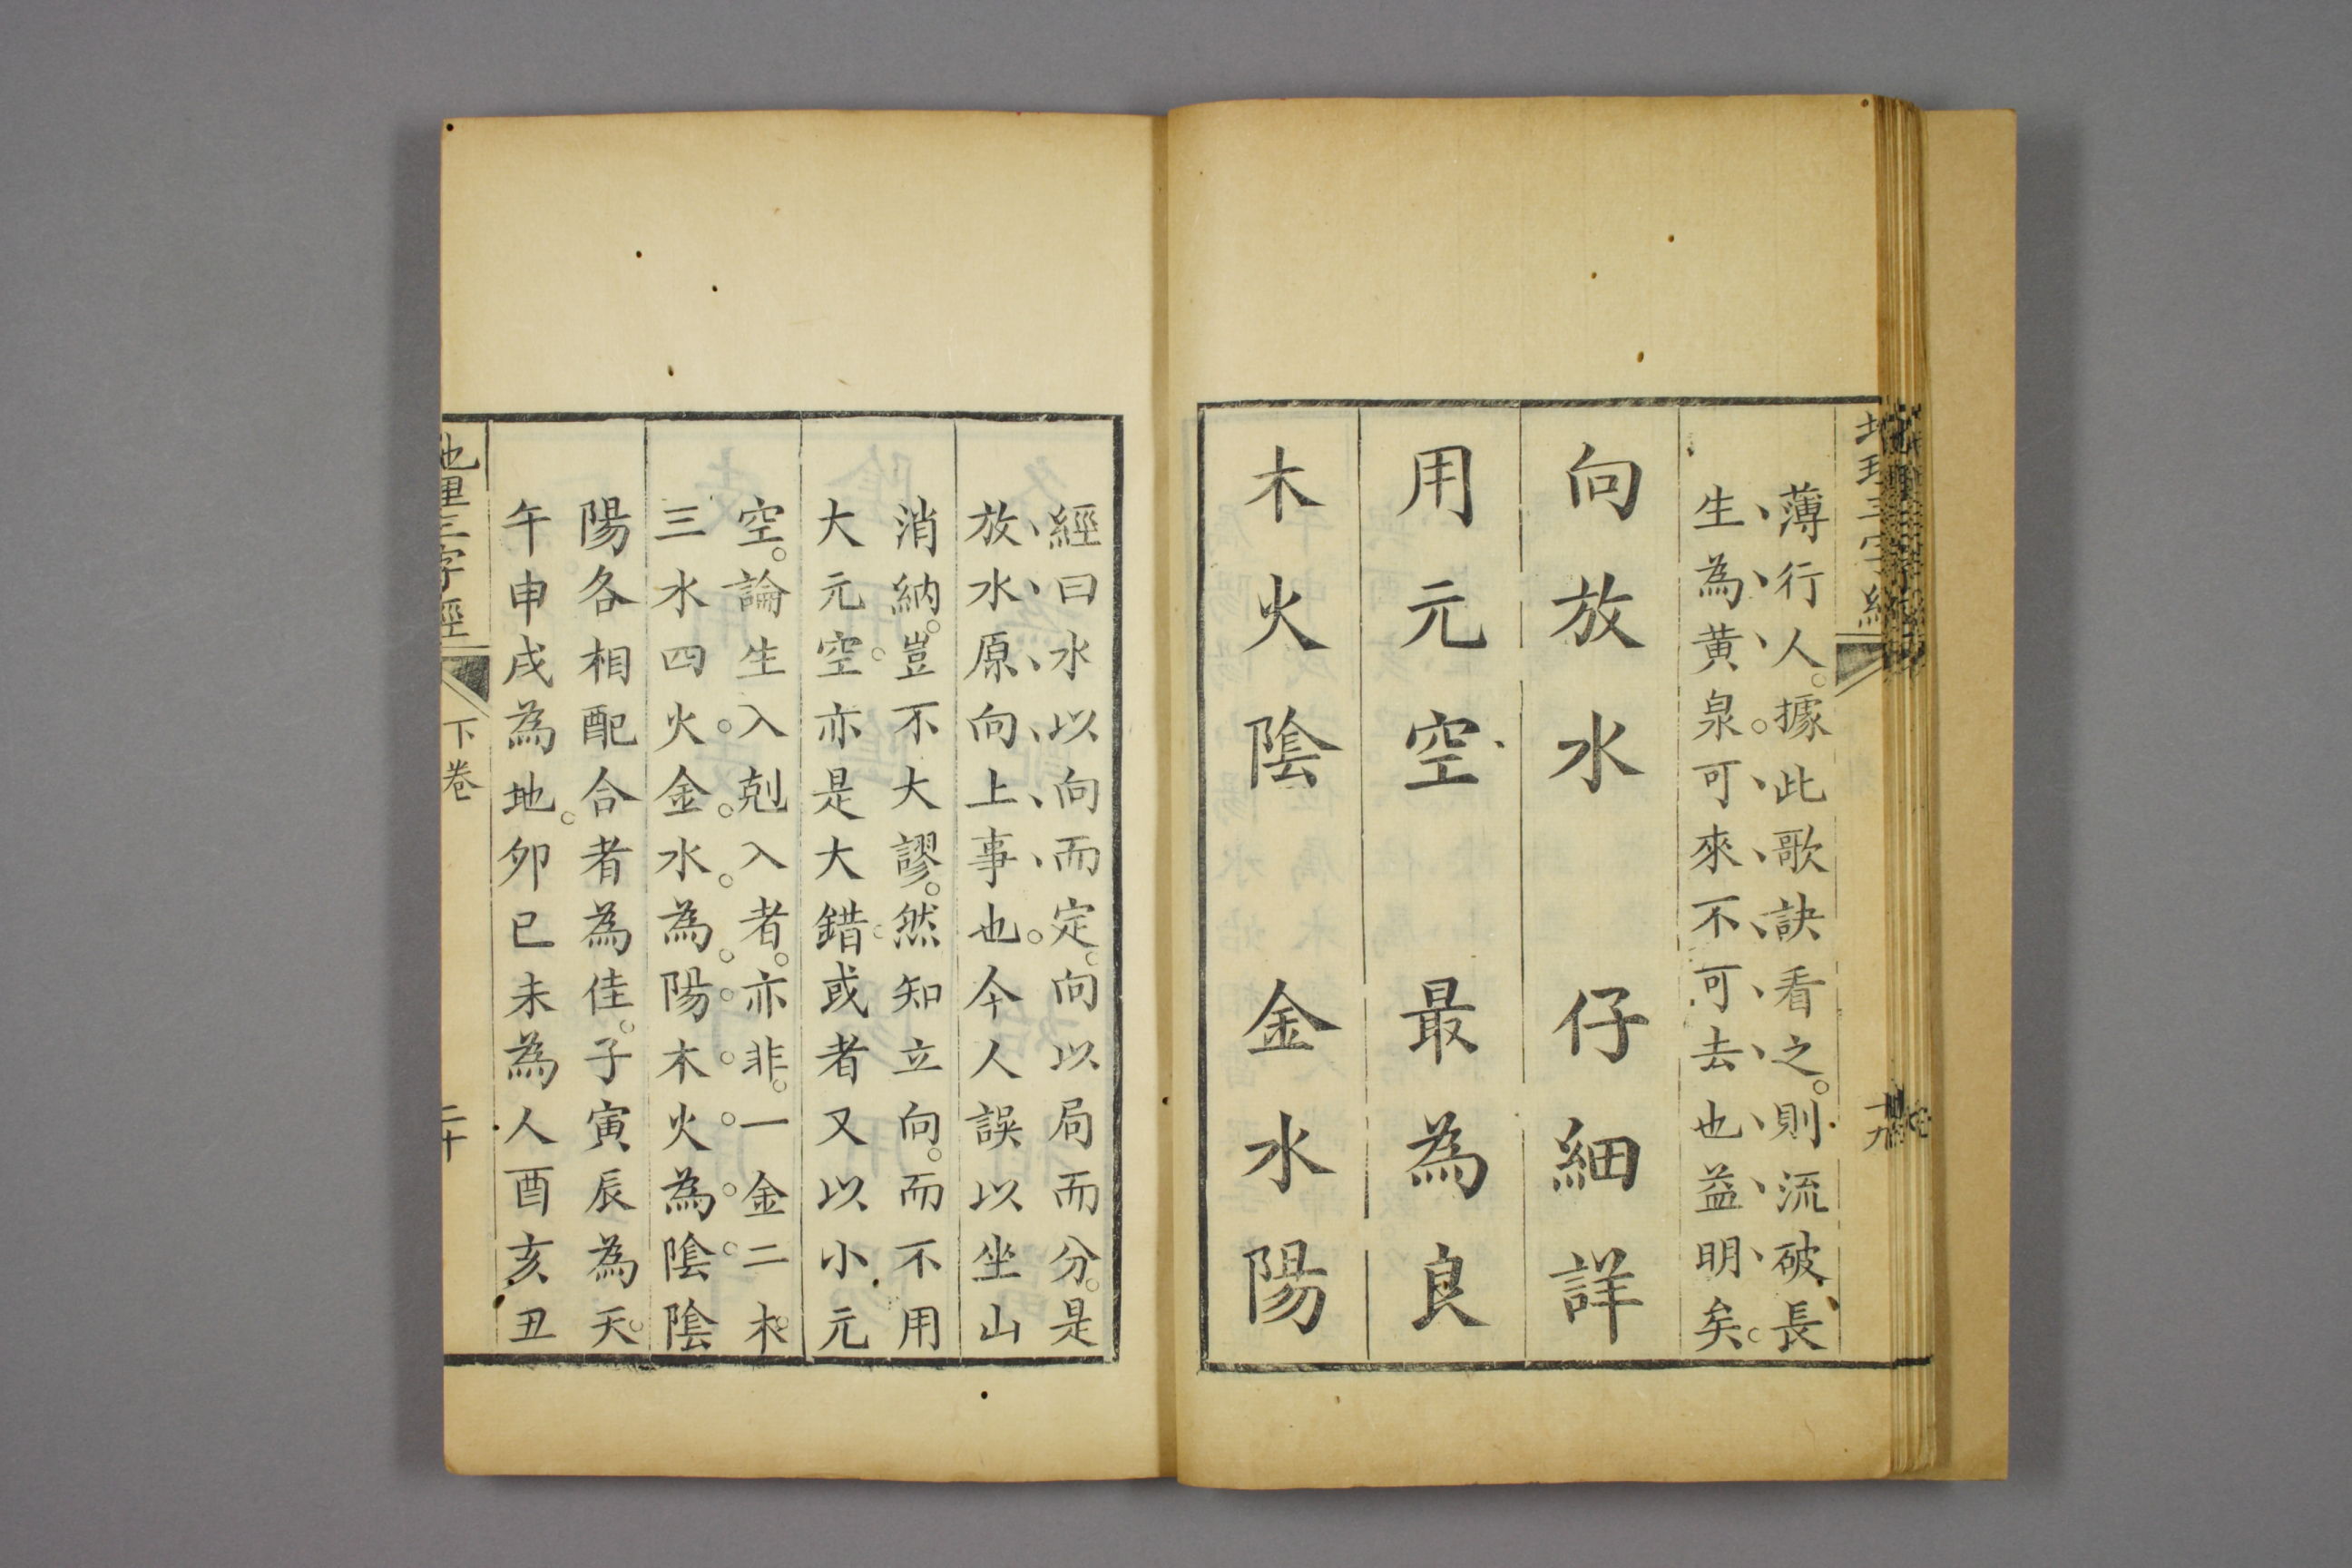 地理三字經
十九
薄行人。據此歌訣看之。則流破長
生為黃泉。可來不可去也益明矣。
向放水　仔細詳
用元空　最為良
木火陰　金水陽
經曰水以向而定。向以局而分。是
放水原向上事也。今人誤以坐山
消納。豈不大謬。然知立向。而不用
大元空。亦是大錯。或者又以小元
空。論生入剋入者。亦非。一金二木。
三水四火。金。水。為。陽。木。火。為。陰。陰
陽各相配合者為佳。子寅辰為天。
午申戌為地。卯巳未為人酉亥丑
地理三字經
下卷
二十